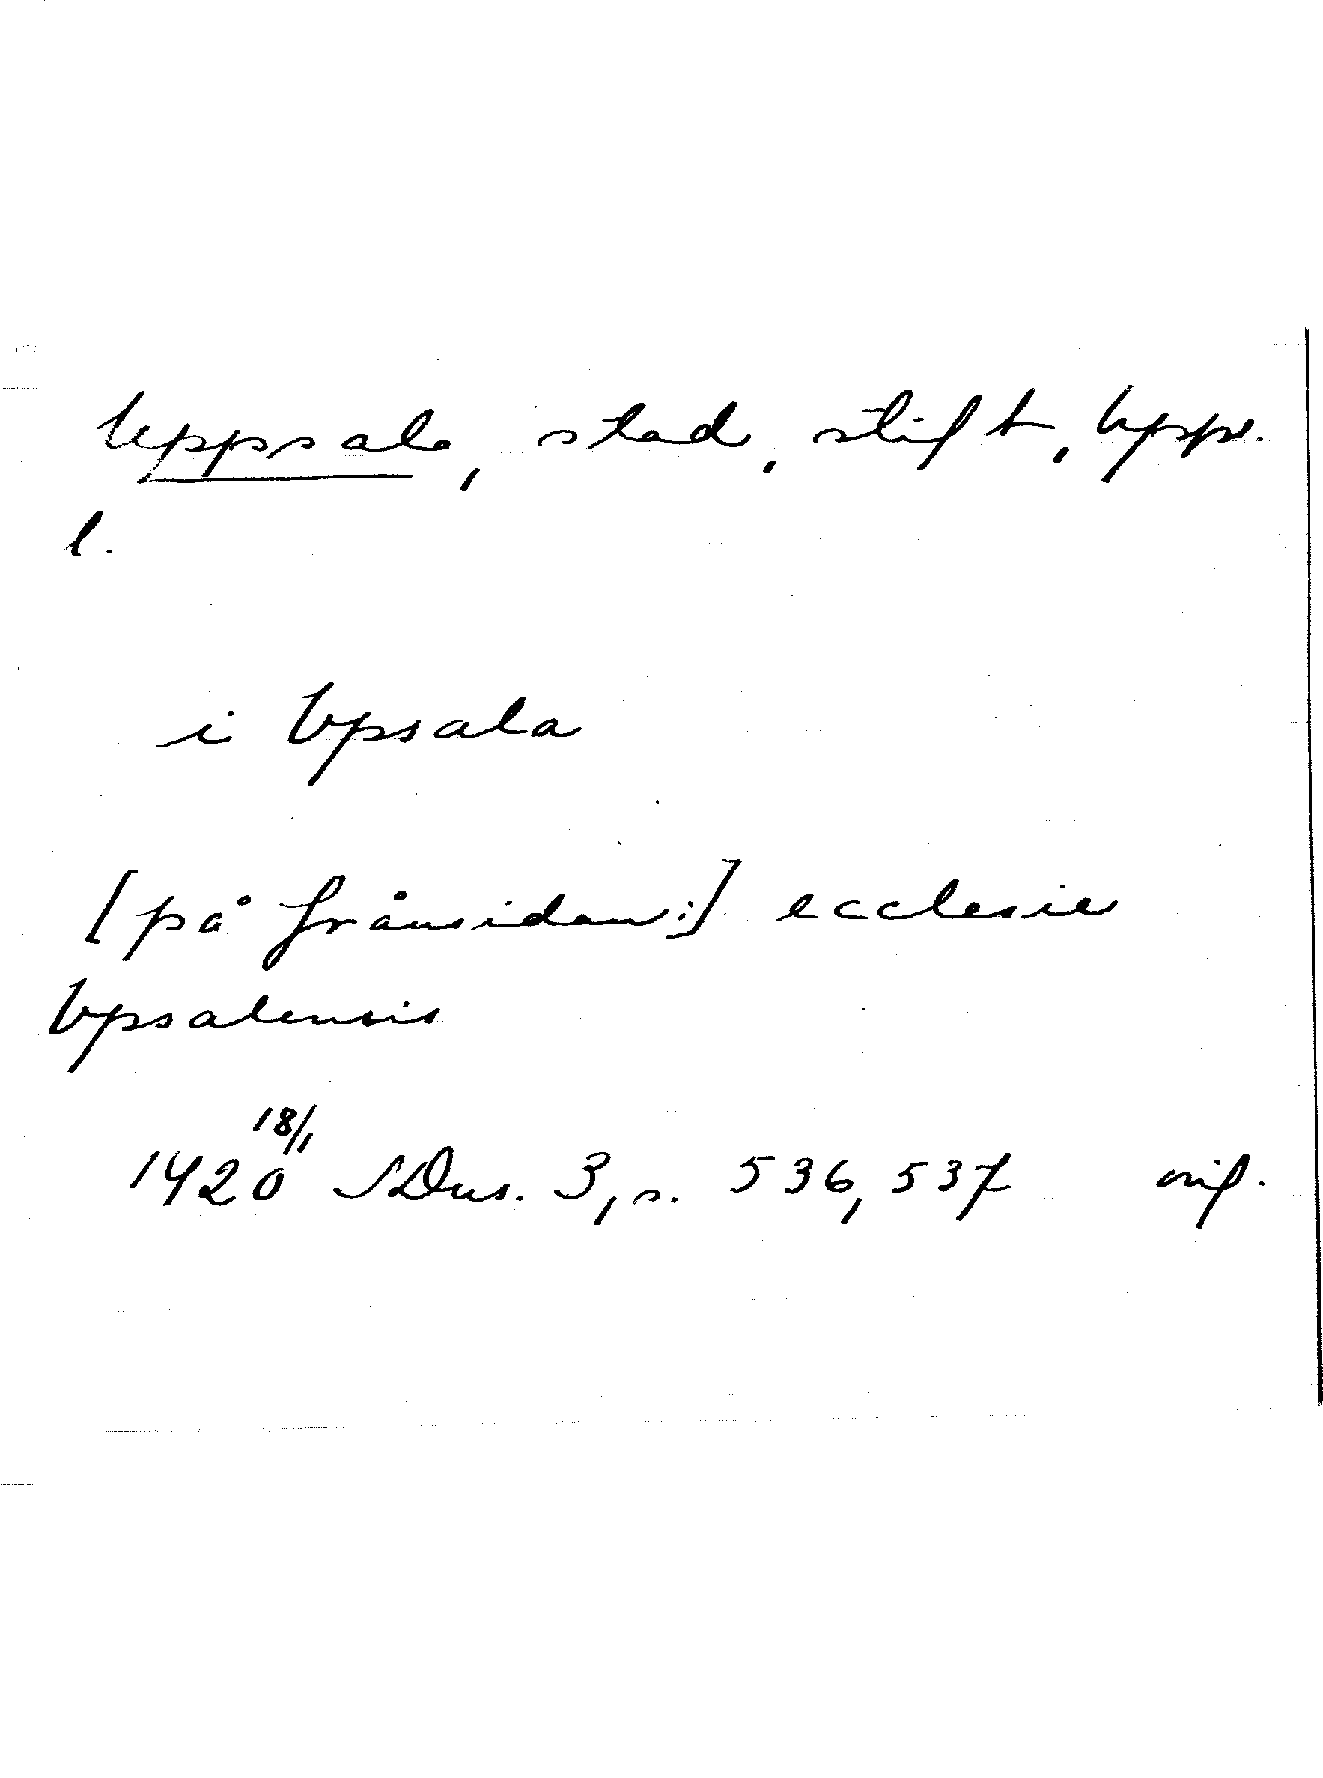 Uppsala, stad, stift, Uppl.
l.
i Vpsala
[på frånsidan:] ecclesie
Vpsalensis
1420 18/1 SDns. 3, s. 536, 537 orig.